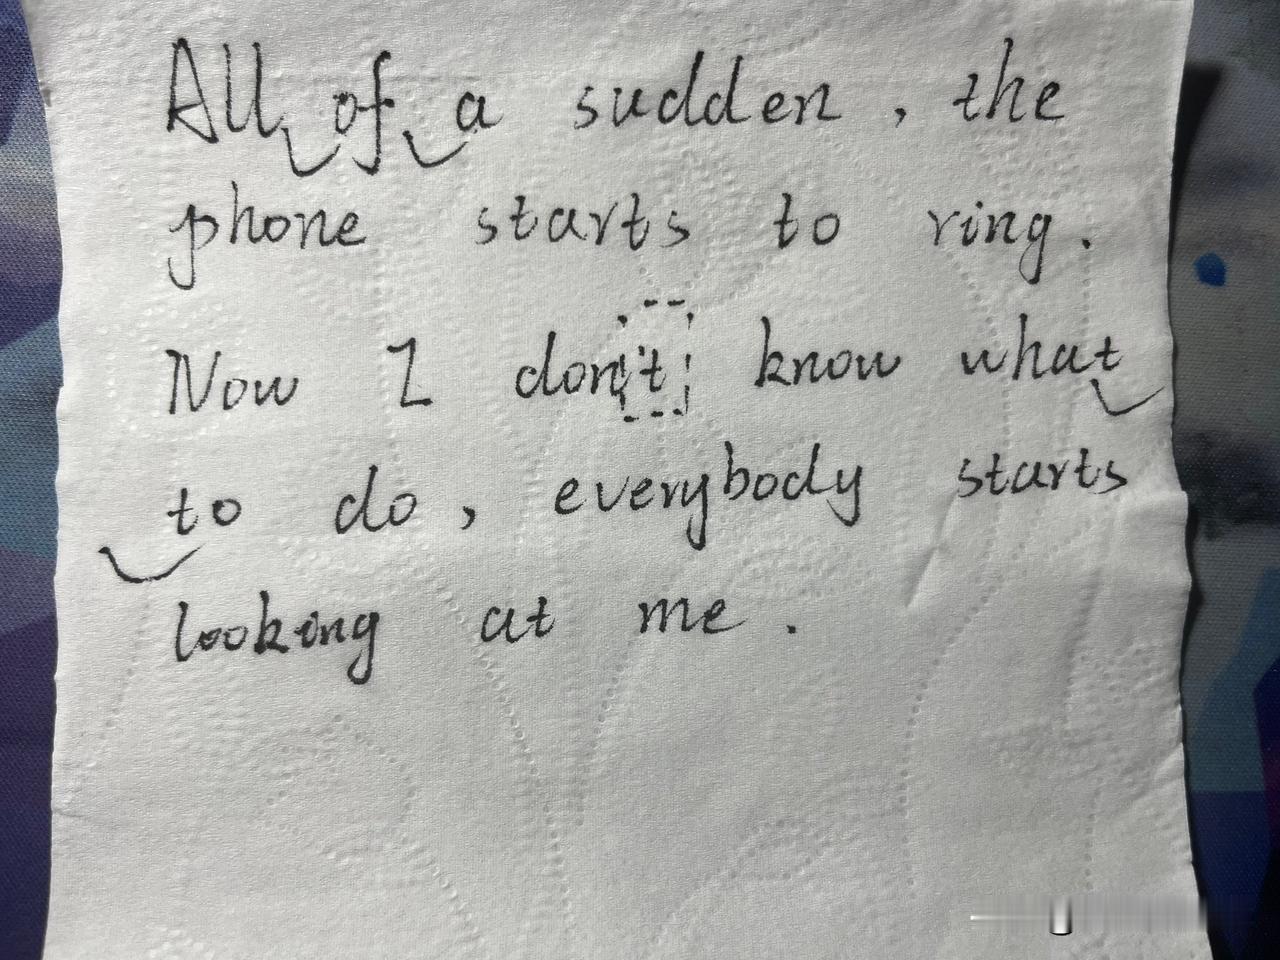 All of a sudden, the
phone starts to ring.
Now I don't know what
to do, everybody starts
looking at me.